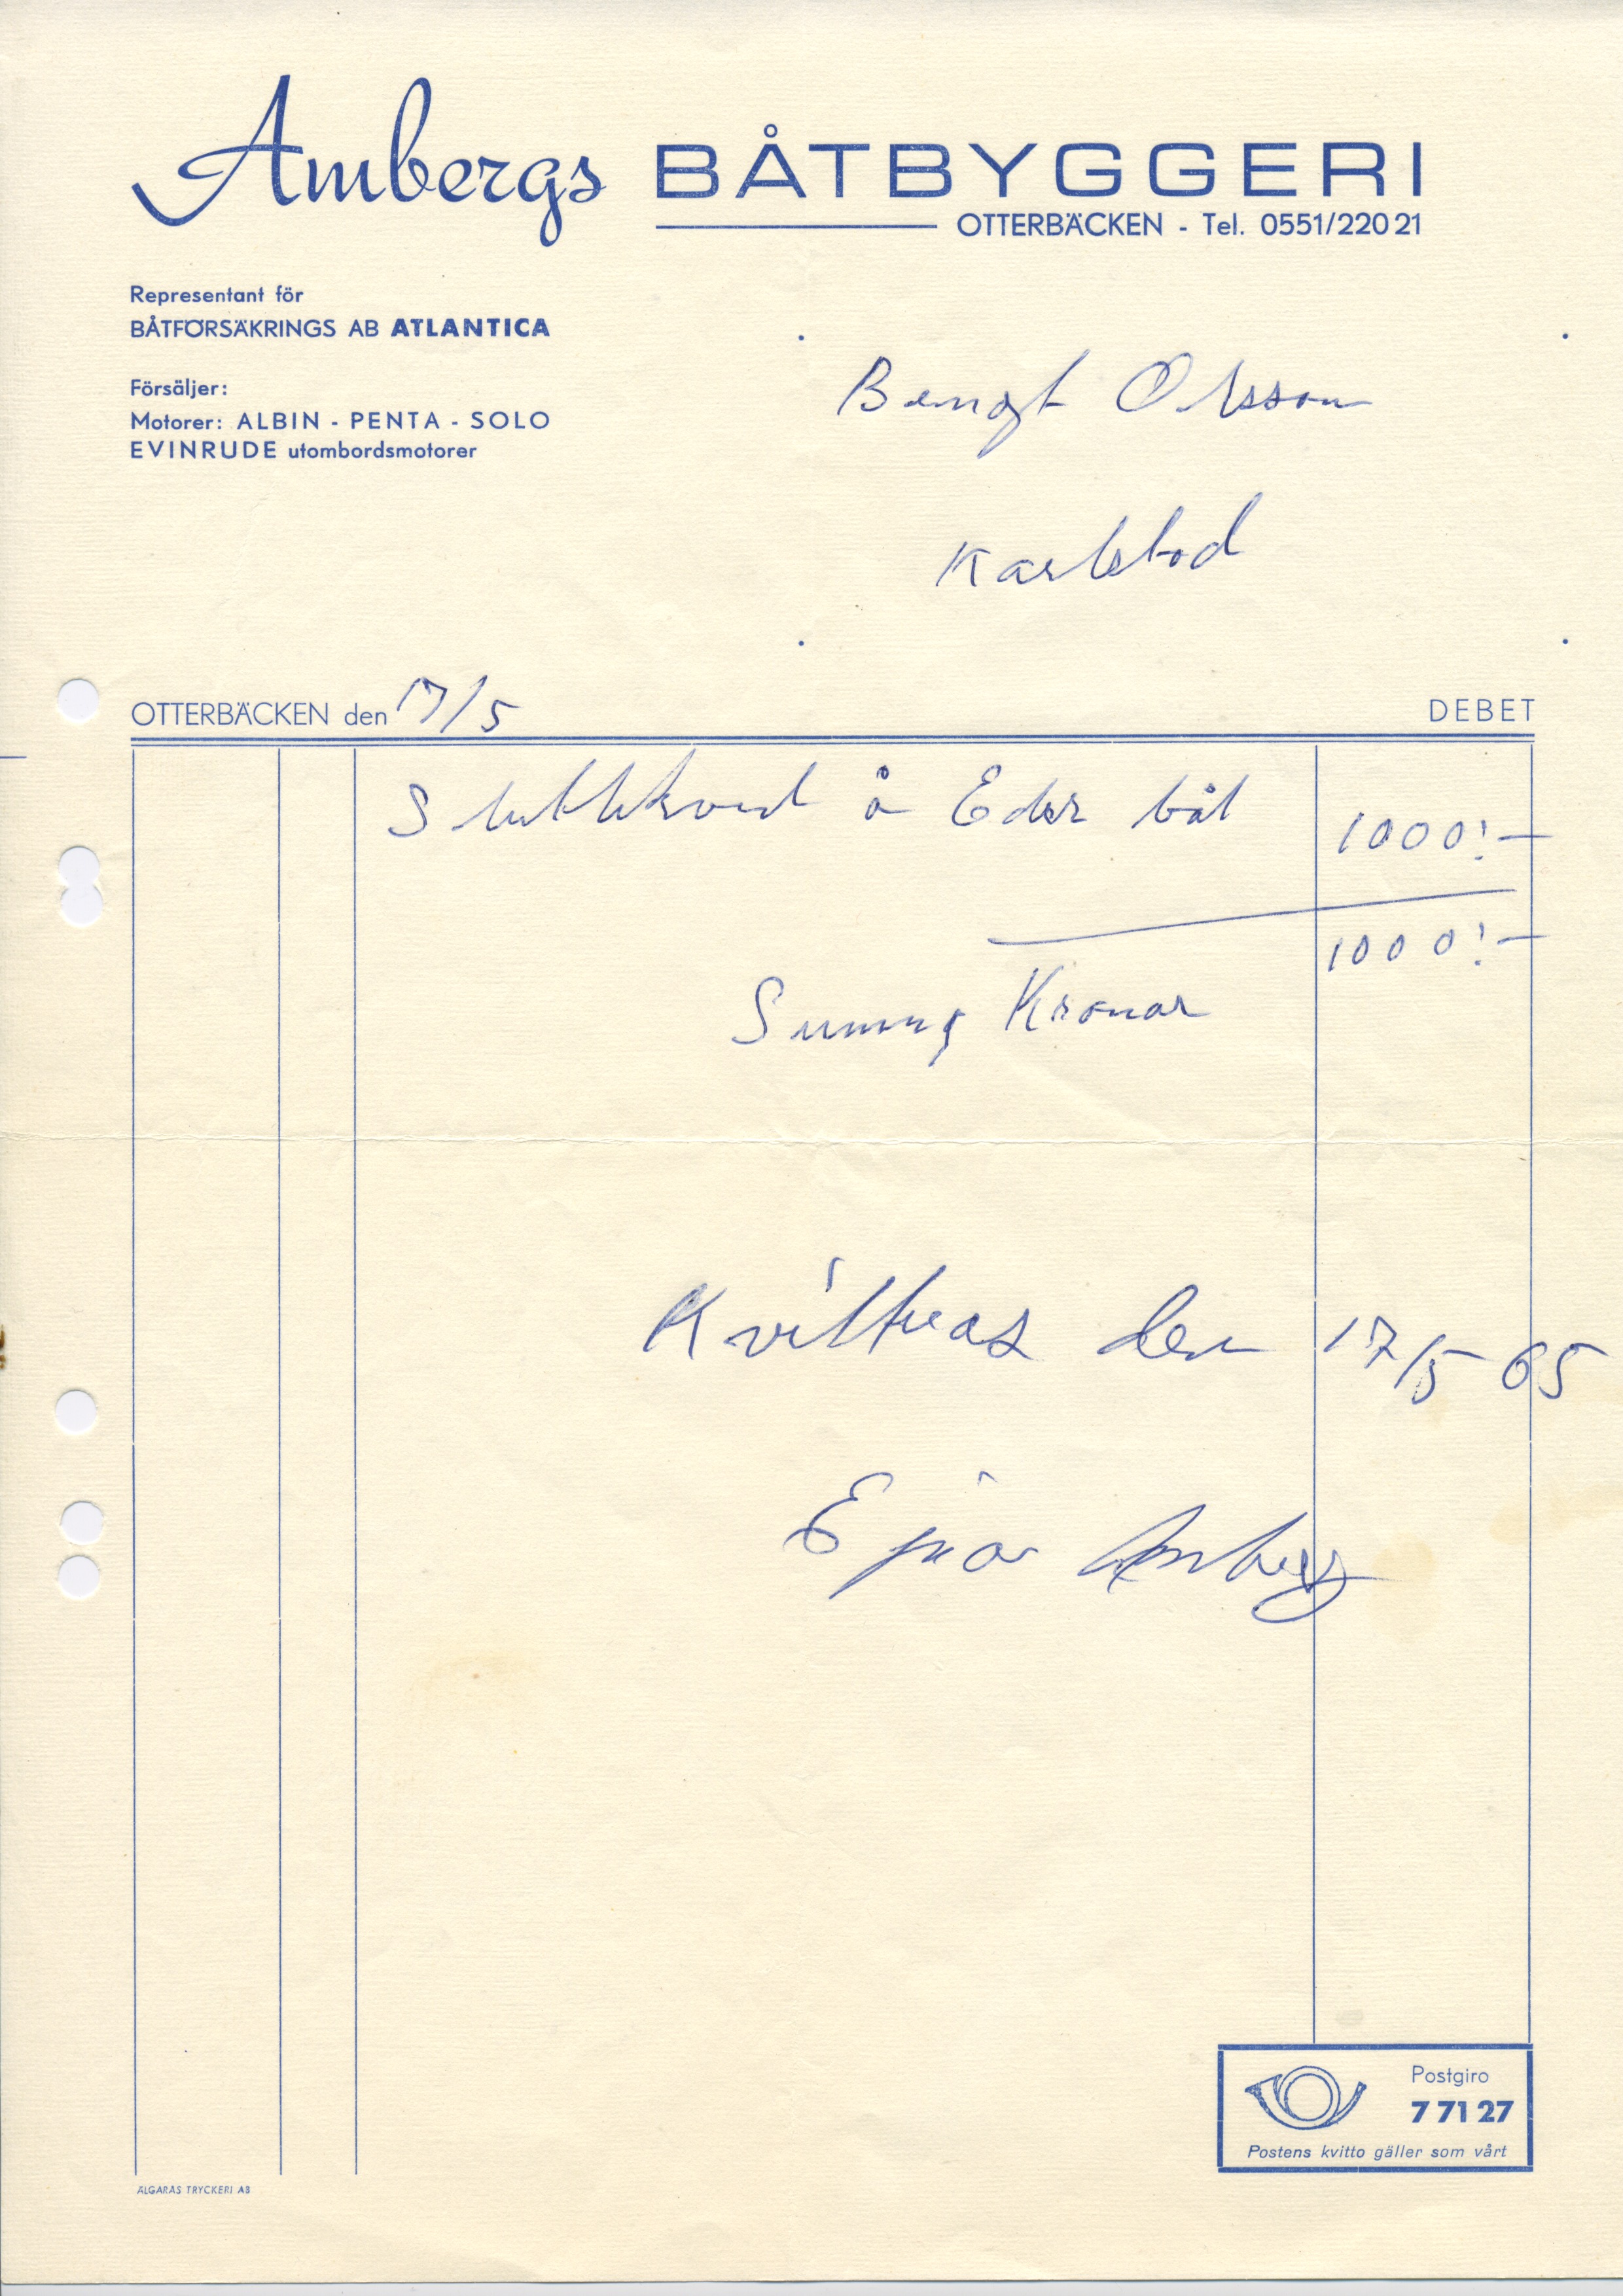 Ambergs BÅTBYGGERI
OTTERBÄCKEN - Tel. 0551/220 21
Representant för
BÅTFÖRSÄKRINGS AB ATLANTICA
Försäljer:
Motorer: ALBIN - PENTA - SOLO
EVINRUDE utombordsmotorer
Bengt Olsson
Karlstad
OTTERBÄCKEN den 17/5
DEBET
Slutlikvid å Eder båt 1000:-
1000:-
Summa Kronor
Kvitteras den 17/5 65
Ejnar Amberg
Postgiro
7 71 27
Postens kvitto gäller som vårt
ÄLGARÅS TRYCKERI AB